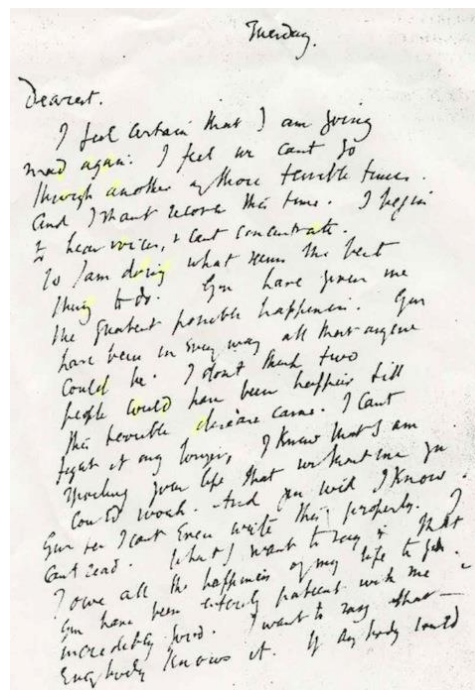 Tuesday.
Dearest.
I feel certain that I am going
mad again. I feel we cant go
through another of those terrible times.
And I shant recover this time. I begin
to hear voices, & cant concentrate.
So I am doing what seems the best
thing to do. You have given me
the greatest possible happiness. You
have been in every way all that anyone
could be. I dont think two
people could have been happier till
this terrible disease came. I cant
fight it any longer, I know that I am
spoiling your life that without me you
could work. And you will I know.
You see I cant even write this properly. I
cant read. What I want to say is that
I owe all the happiness of my life to you.
You have been entirely patient with me &
incredibly good. I want to say that —
everybody knows it. If anybody could